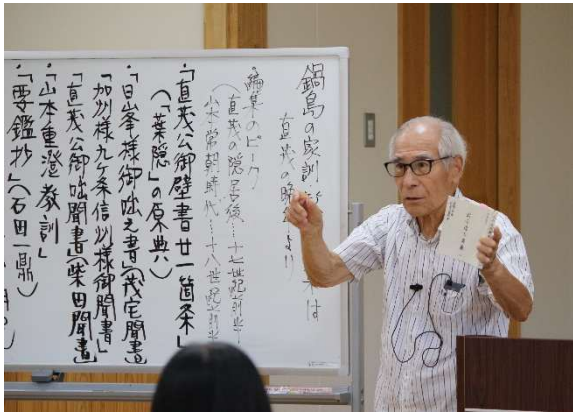 鍋島の家訓
は
直茂の晩年より
・編纂のピーク
(直茂の隠居後…十七世紀前半
山本常朝時代…十八世紀前半
・「直茂公御壁書廿一箇条」
(「葉隠」の原典)
・「日峯様御咄之書」(茂宅聞書)
・「加州様九ヶ条信州様御聞書」
・「直茂公御咄聞書」(柴田聞書)
・「山本重澄教訓」
・「要鑑抄」(石田一鼎)